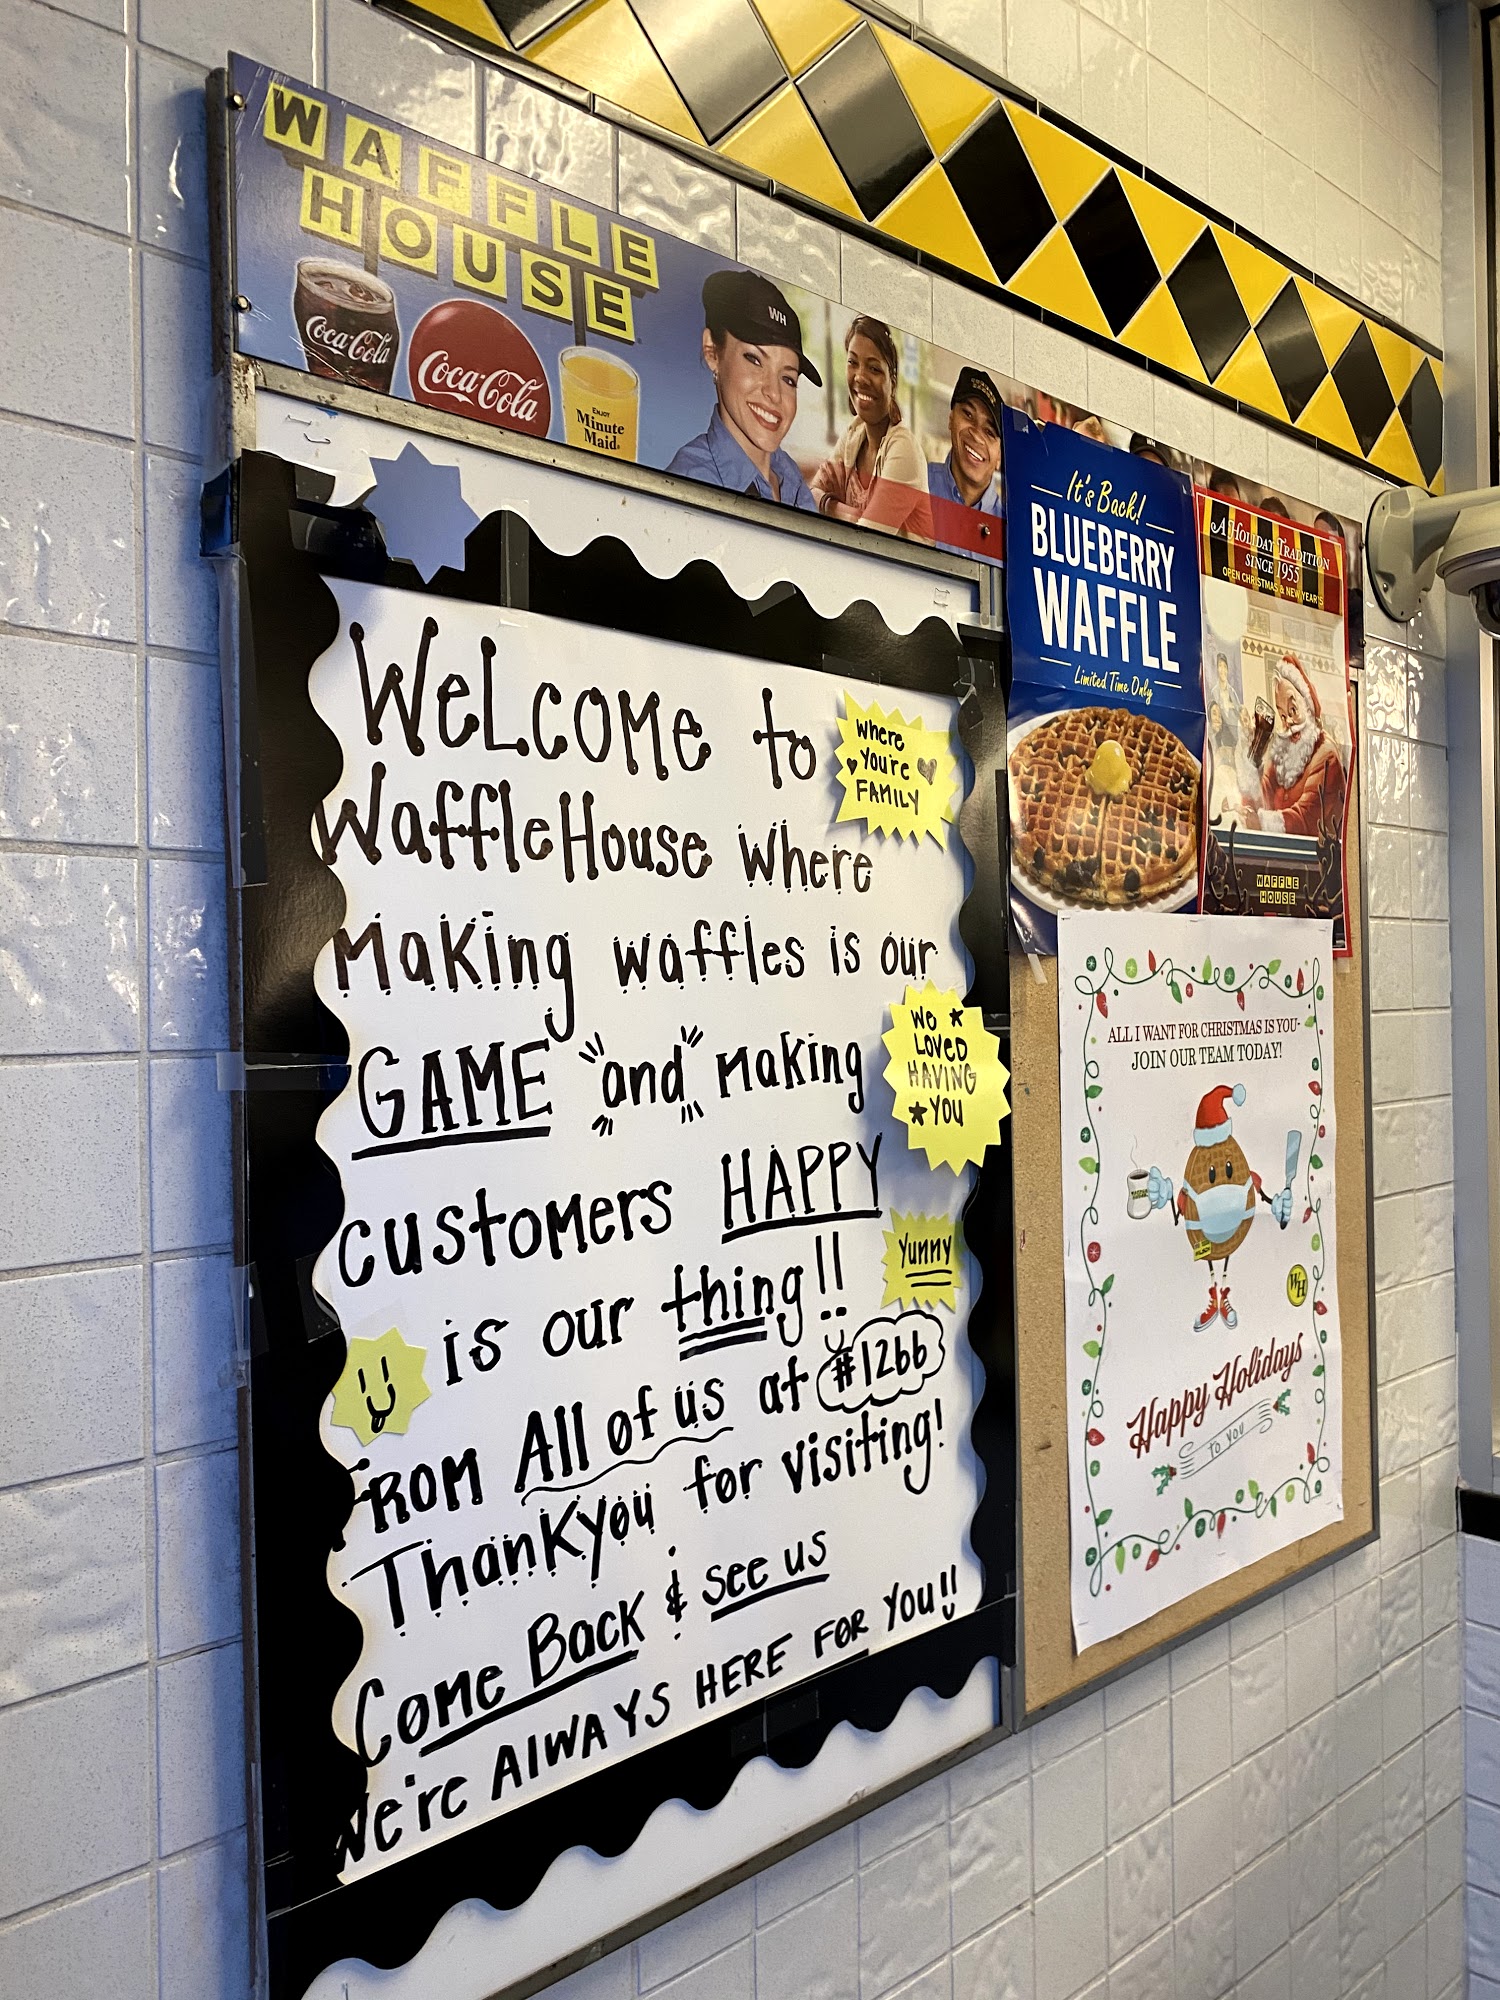 WAFFLE
HOUSE
Coca-Cola
Coca-Cola
ENJOY
Minute
Maid
WH
WELCOME to
WaffleHouse where
Making waffles is our
GAME "and" Making
customers HAPPY
is our thing!!
FROM All of us at #1266
ThankYou for visiting!
Come Back & see us
We're AlWAYS HERE FOR YOU!!
Where
You're
FAMILY
We
LOVED
HAVING
YOU
Yunny
It's Back!
BLUEBERRY
WAFFLE
Limited Time Only
A HOLIDAY TRADITION
SINCE 1955
OPEN CHRISTMAS & NEW YEAR'S
WAFFLE
HOUSE
ALL I WANT FOR CHRISTMAS IS YOU-
JOIN OUR TEAM TODAY!
WH
Happy Holidays
to you